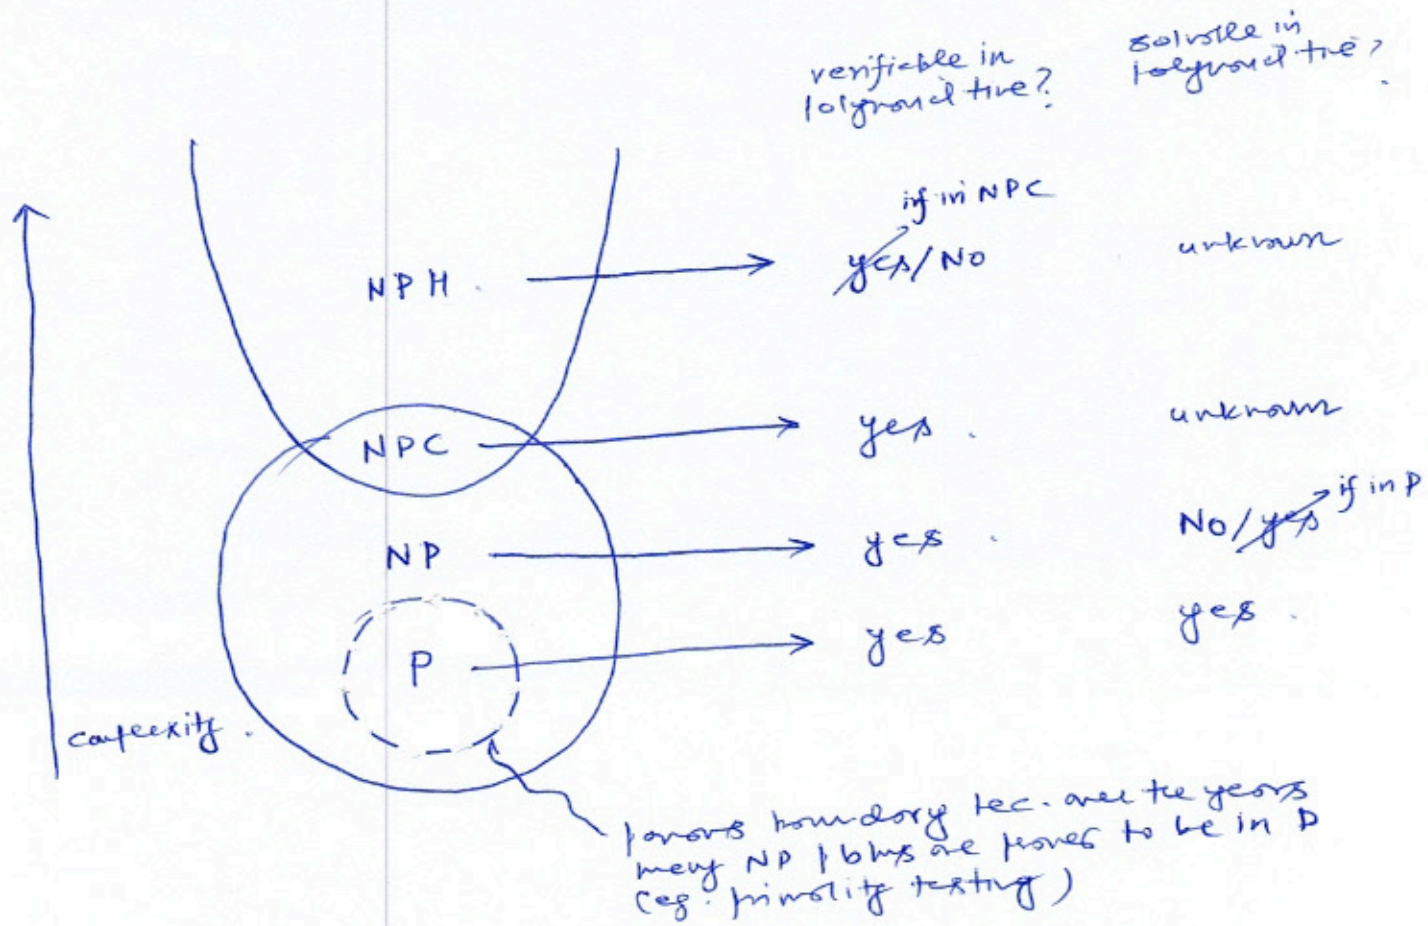 verifiable in
polynomial time?
solvable in
polynomial time?
if in NPC
NPH
yes/NO
unknown
NPC
yes.
unknown
if in P
NP
yes.
NO/yes
P
yes
yes.
complexity.
porous boundary bec. over the years
many NP pblms are proved to be in P
(eg. primality testing)